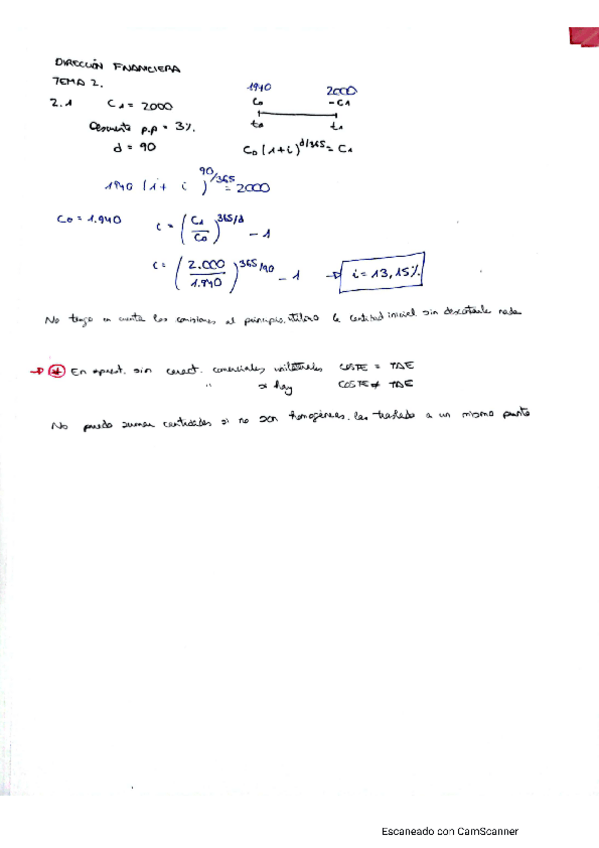 DIRECCIÓN FINANCIERA
TEMA 2.
2.1 C1 = 2000
Descuento p.p = 3%.
d = 90
1940 2000
C0 -C1
t0 t1
C0 (1+i)^d/365 = C1
1940 (1+ i )^90/365 = 2000
C0 = 1.940 i = (C1/C0)^365/d - 1
i = (2.000/1.940)^365/90 - 1 → i = 13,15%
No tengo en cuenta las comisiones al principio. utilizo la cantidad inicial sin descontarle nada
→ * En operat. sin caract. comerciales unilaterales COSTE = TAE
" si hay COSTE ≠ TAE
No puedo sumar cantidades si no son homogéneas. las traslado a un mismo punto
Escaneado con CamScanner